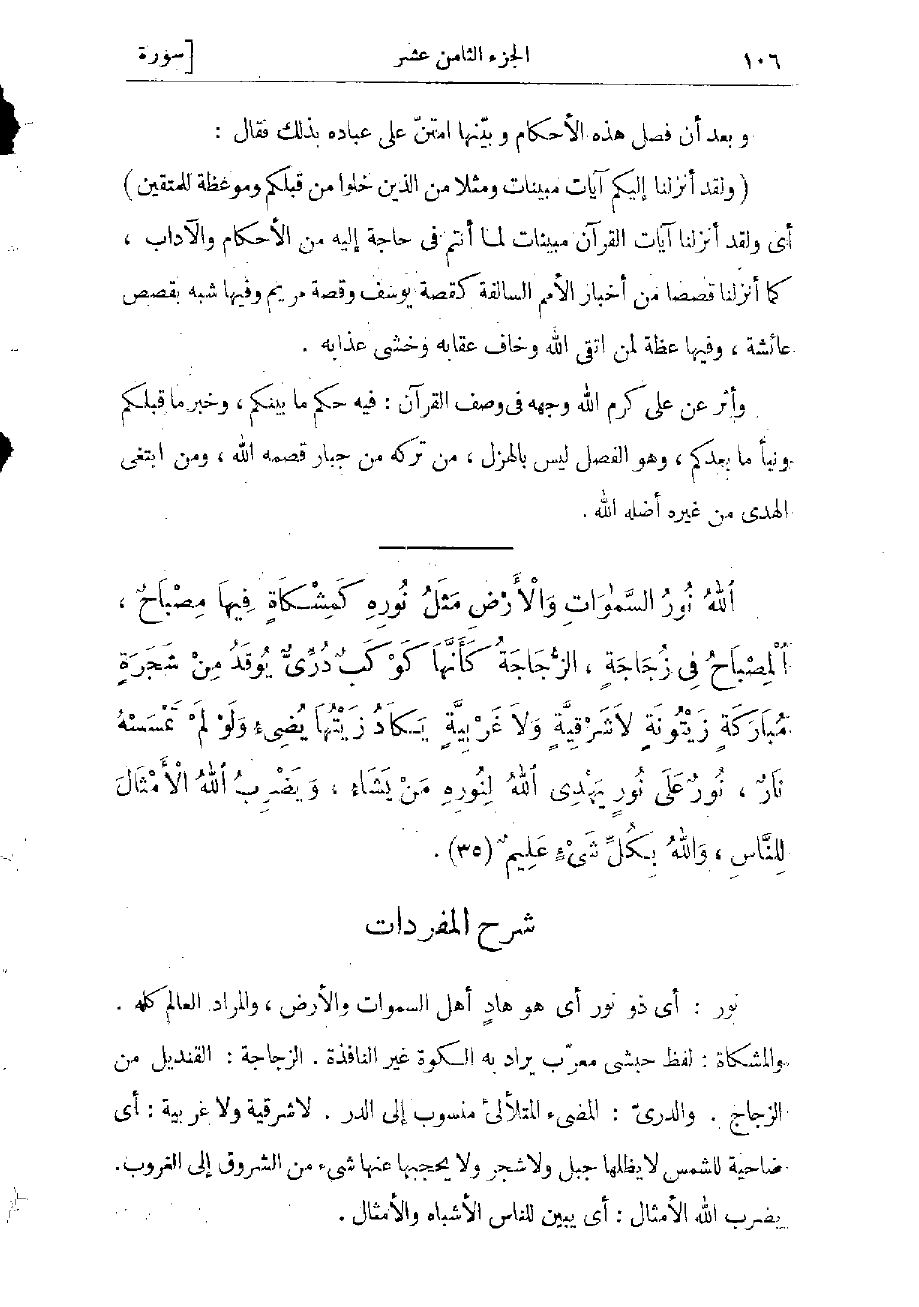 ١٠٦ الجزء الثامن عشر [ سورة
و بعد أن فصل هذه الأحكام و بيّنها امتنّ على عباده بذلك فقال :
( ولقد أنزلنا إليكم آيات مبينات ومثلا من الذين خلوا من قبلكم وموعظة للمتقين )
أى ولقد أنزلنا آيات القرآن مبينات لما أنتم فى حاجة إليه من الأحكام والآداب ،
كما أنزلنا قصصا من أخبار الأمم السالفة كقصة يوسف وقصة مريم وفيها شبه بقصص
عائشة ، وفيها عظة لمن اتقى الله وخاف عقابه وخشى عذابه .
وأثر عن على كرم الله وجهه فى وصف القرآن : فيه حكم ما بينكم ، وخبر ما قبلكم
ونبأ ما بعدكم ، وهو الفصل ليس بالهزل ، من تركه من جبار قصمه الله ، ومن ابتغى
الهدى من غيره أضله الله .
اَللهُ نُورُ السَّمٰوَاتِ وَالْأَرْضِ مَثَلُ نُورِهِ كَمِشْكَاةٍ فِيهَا مِصْبَاحٌ ،
اَلْمِصْبَاحُ فِى زُجَاجَةٍ ، الزُّجَاجَةُ كَأَنَّهَا كَوْكَبٌ دُرِّىٌّ يُوقَدُ مِنْ شَجَرَةٍ
مُبَارَكَةٍ زَيْتُونَةٍ لاَشَرْقِيَّةٍ وَلاَ غَرْبِيَّةٍ يَكَادُ زَيْتُهَا يُضِىءُ وَلَوْ لَمْ تَمْسَسْهُ
نَارٌ ، نُورٌ عَلَى نُورٍ يَهْدِى اَللهُ لِنُورِهِ مَنْ يَشَاءُ ، وَيَضْرِبُ اَللهُ الْأَمْثَالَ
لِلنَّاسِ ، وَاللهُ بِكُلِّ شَىْءٍ عَلِيمٌ (٣٥) .
شرح المفردات
نور : أى ذو نور أى هو هادٍ أهل السموات والأرض ، والمراد العالم كله .
والمشكاة : لفظ حبشى معرّب يراد به الكوة غير النافذة . الزجاجة : القنديل من
الزجاج . والدرىّ : المضىء المتلألئ منسوب إلى الدر . لاشرقية ولا غربية : أى
ضاحية للشمس لايظلها جبل ولاشجر ولا يحجبها عنها شىء من الشروق إلى الغروب.
يضرب الله الأمثال : أى يبين للناس الأشباه والأمثال .